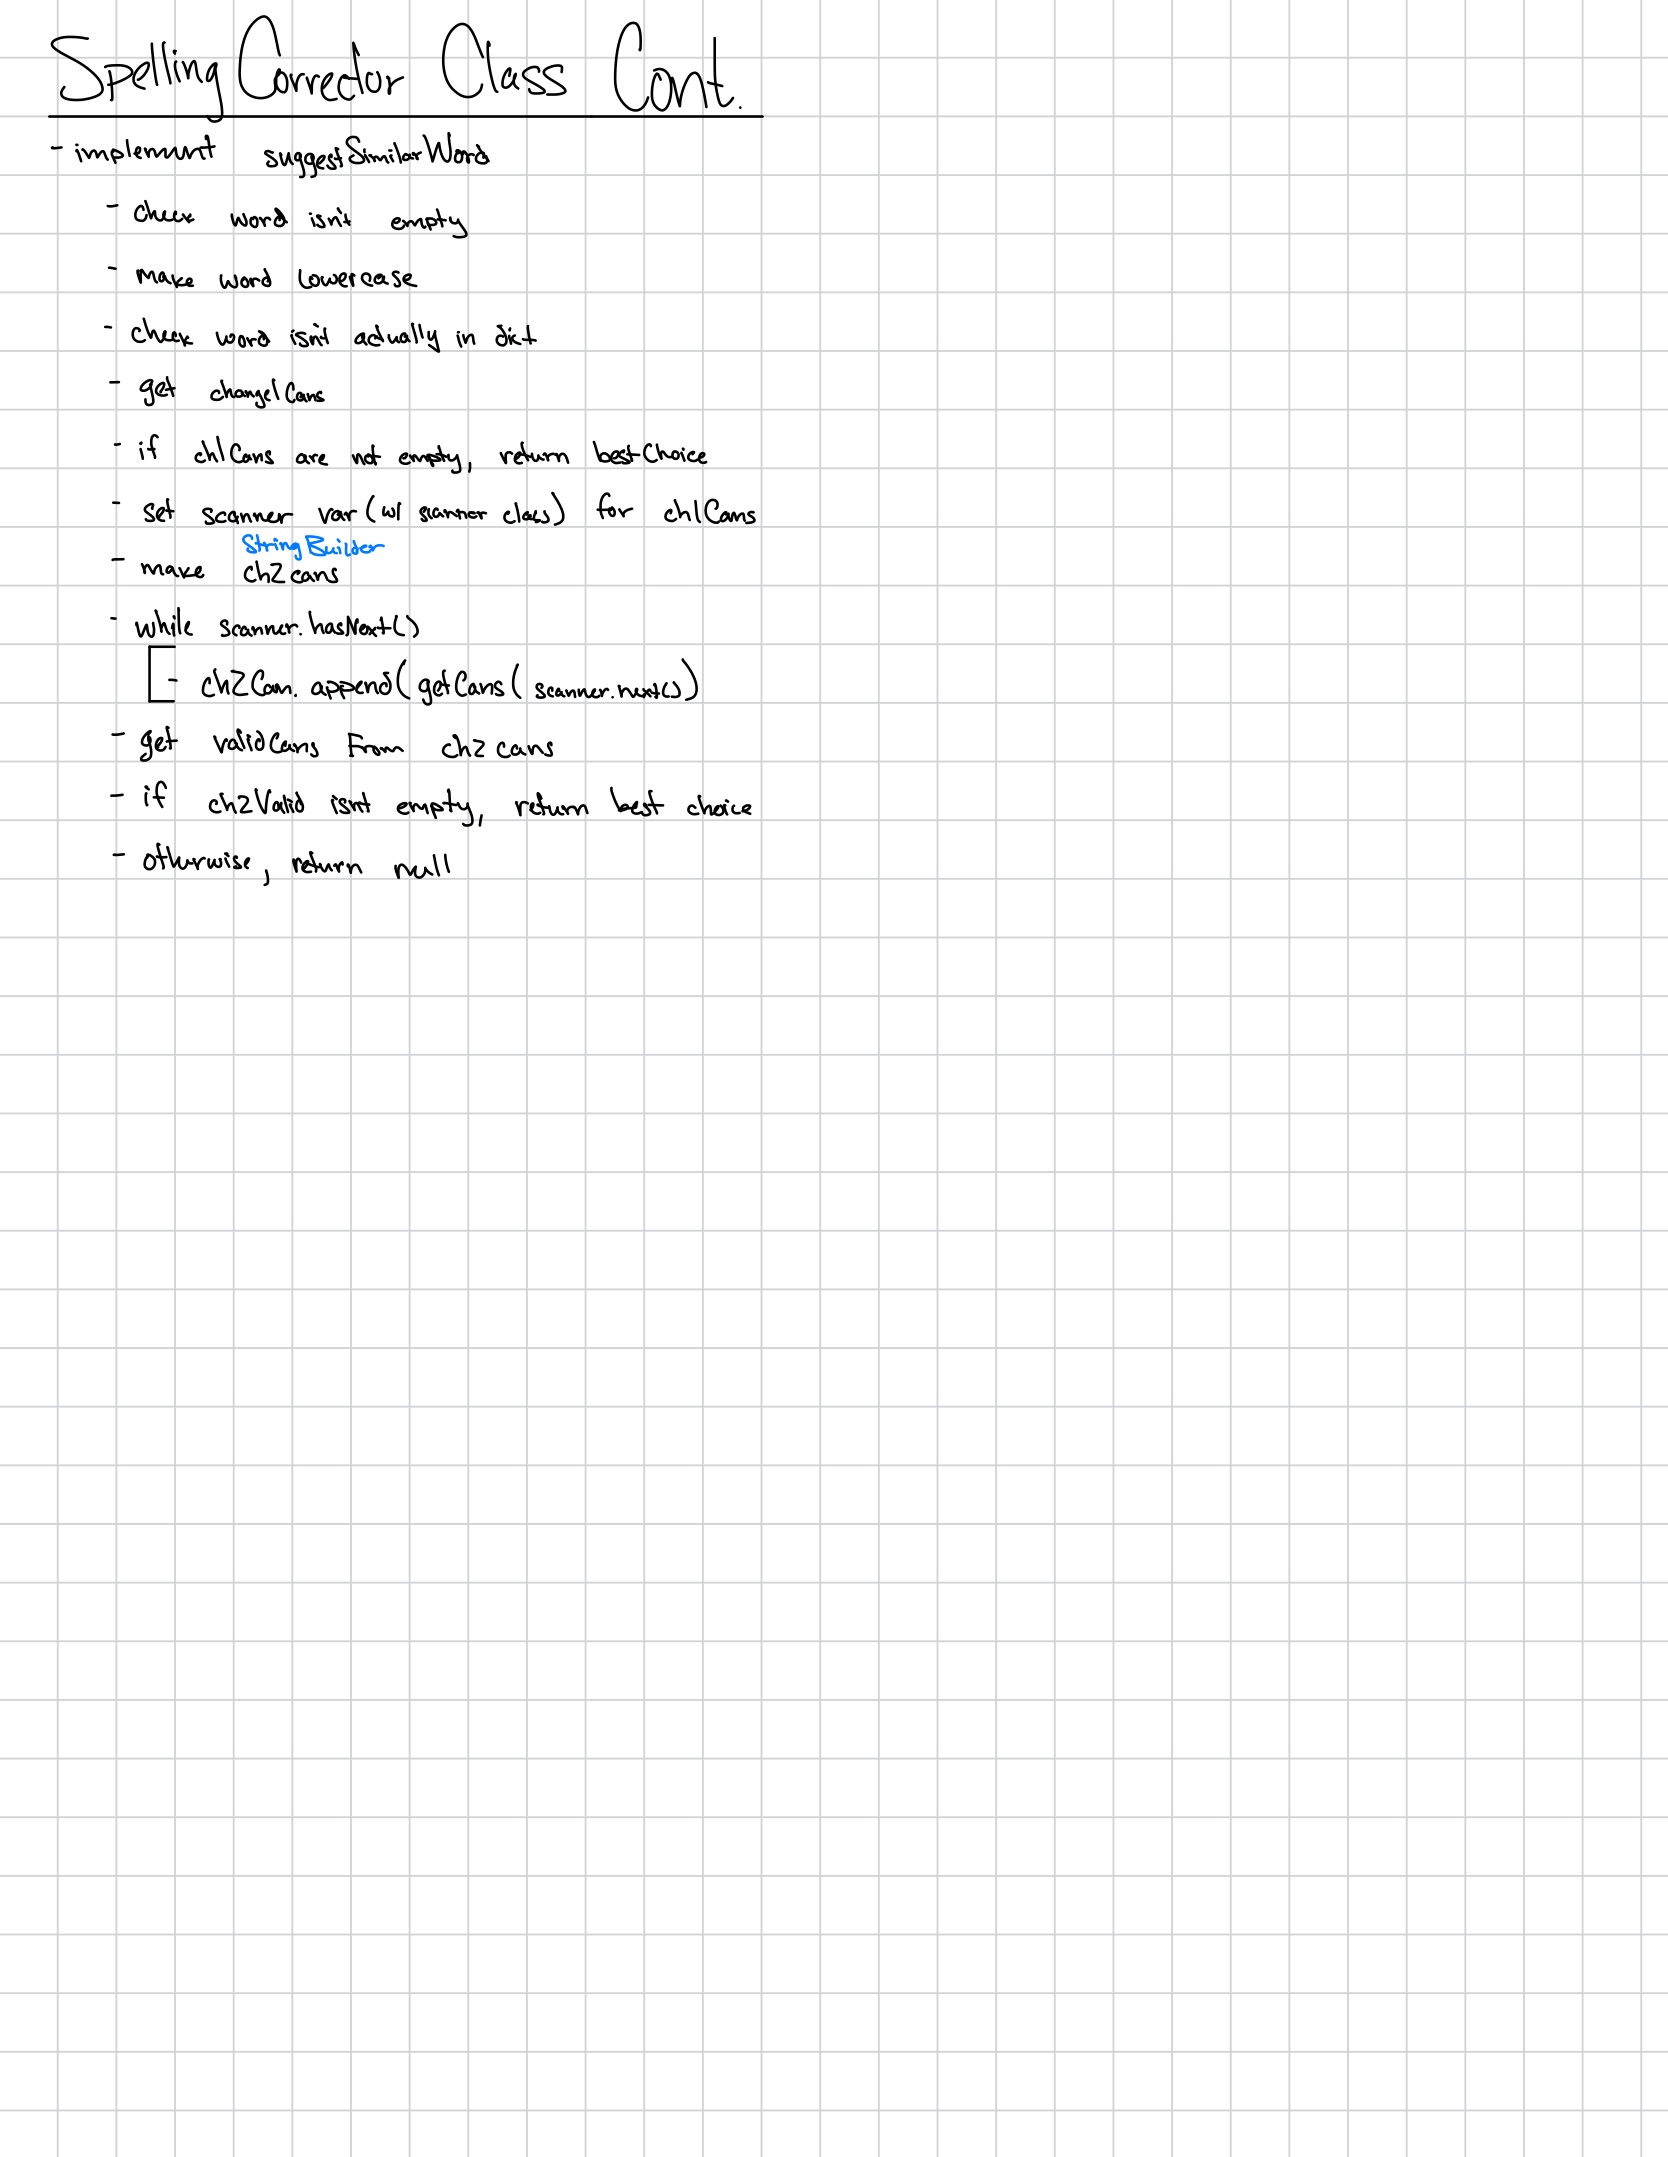 Spelling Corrector Class Cont.
- implement suggestSimilarWord
- check word isn't empty
- make word lowercase
- check word isn't actually in dict
- get change1Cans
- if ch1Cans are not empty, return bestChoice
- set scanner var (w/ scanner class) for ch1Cans
StringBuilder
- make ch2cans
- while scanner.hasNext()
- ch2Can.append(getCans(scanner.next())
- get validCans From ch2cans
- if ch2Valid isnt empty, return best choice
- otherwise, return null